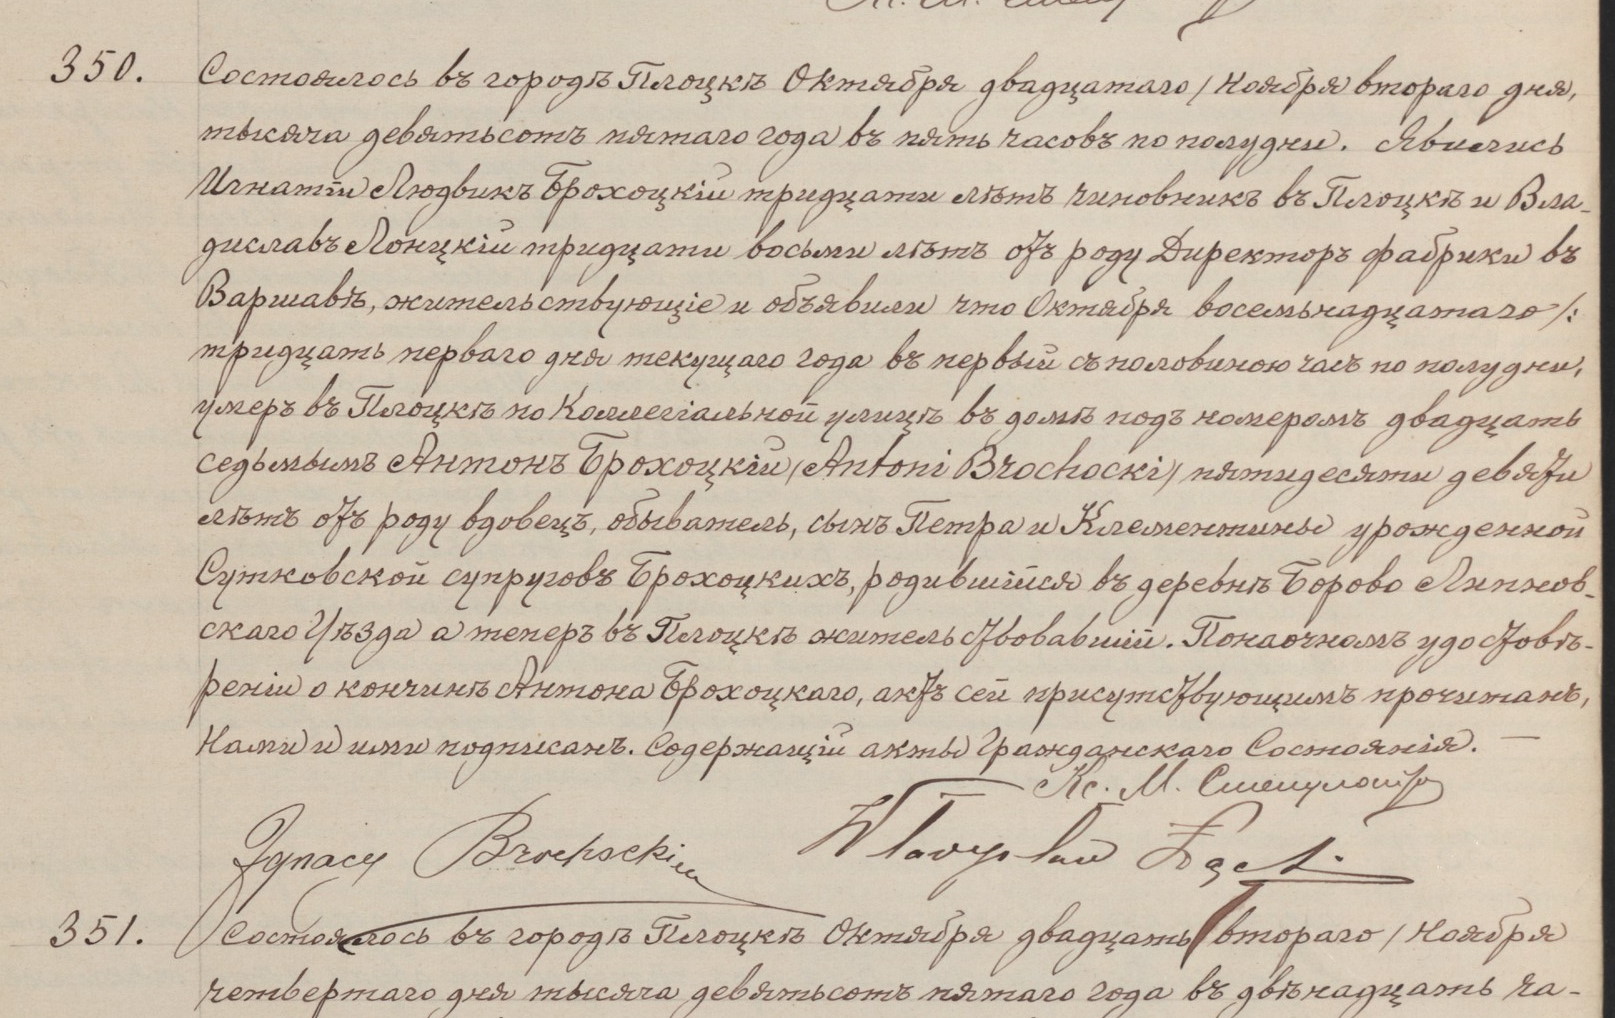 350. Состоялось въ городѣ Плоцкѣ Октября двадцатаго / Ноября втораго дня,
тысяча девятьсотъ пятаго года въ пять часовъ по полудни. Явились
Игнатій Людвикъ Брохоцкій тридцати лѣтъ чиновникъ въ Плоцкѣ и Вла-
диславъ Лонцкій тридцати восьми лѣтъ отъ роду Директоръ фабрики въ
Варшавѣ, жительствующіе и объявили что Октября восемьнадцатаго /:
тридцать перваго дня текущаго года въ первый съ половиною часъ по полудни,
умеръ въ Плоцкѣ по Коллегіальной улицѣ въ домѣ подъ номеромъ двадцать
седьмымъ Антонъ Брохоцкій / Antoni Brochocki / пятидесяти девяти
лѣтъ отъ роду вдовецъ, обыватель, сынъ Петра и Клементины урожденной
Сутковской супруговъ Брохоцкихъ, родившійся въ деревнѣ Борово Липнов-
скаго Уѣзда а теперъ въ Плоцкѣ жительствовавшій. Понаочномъ удостовѣ-
реніи о кончинѣ Антона Брохоцкаго, актъ сей присутствующимъ прочитанъ,
Нами и ими подписанъ. Содержащій акты Гражданскаго Состоянія. —
Кс. М.
Ignacy Brochocki
351. Состоялось въ городѣ Плоцкѣ Октября двадцать втораго / Ноября
четвертаго дня тысяча девятьсотъ пятаго года въ двѣнадцать ча-